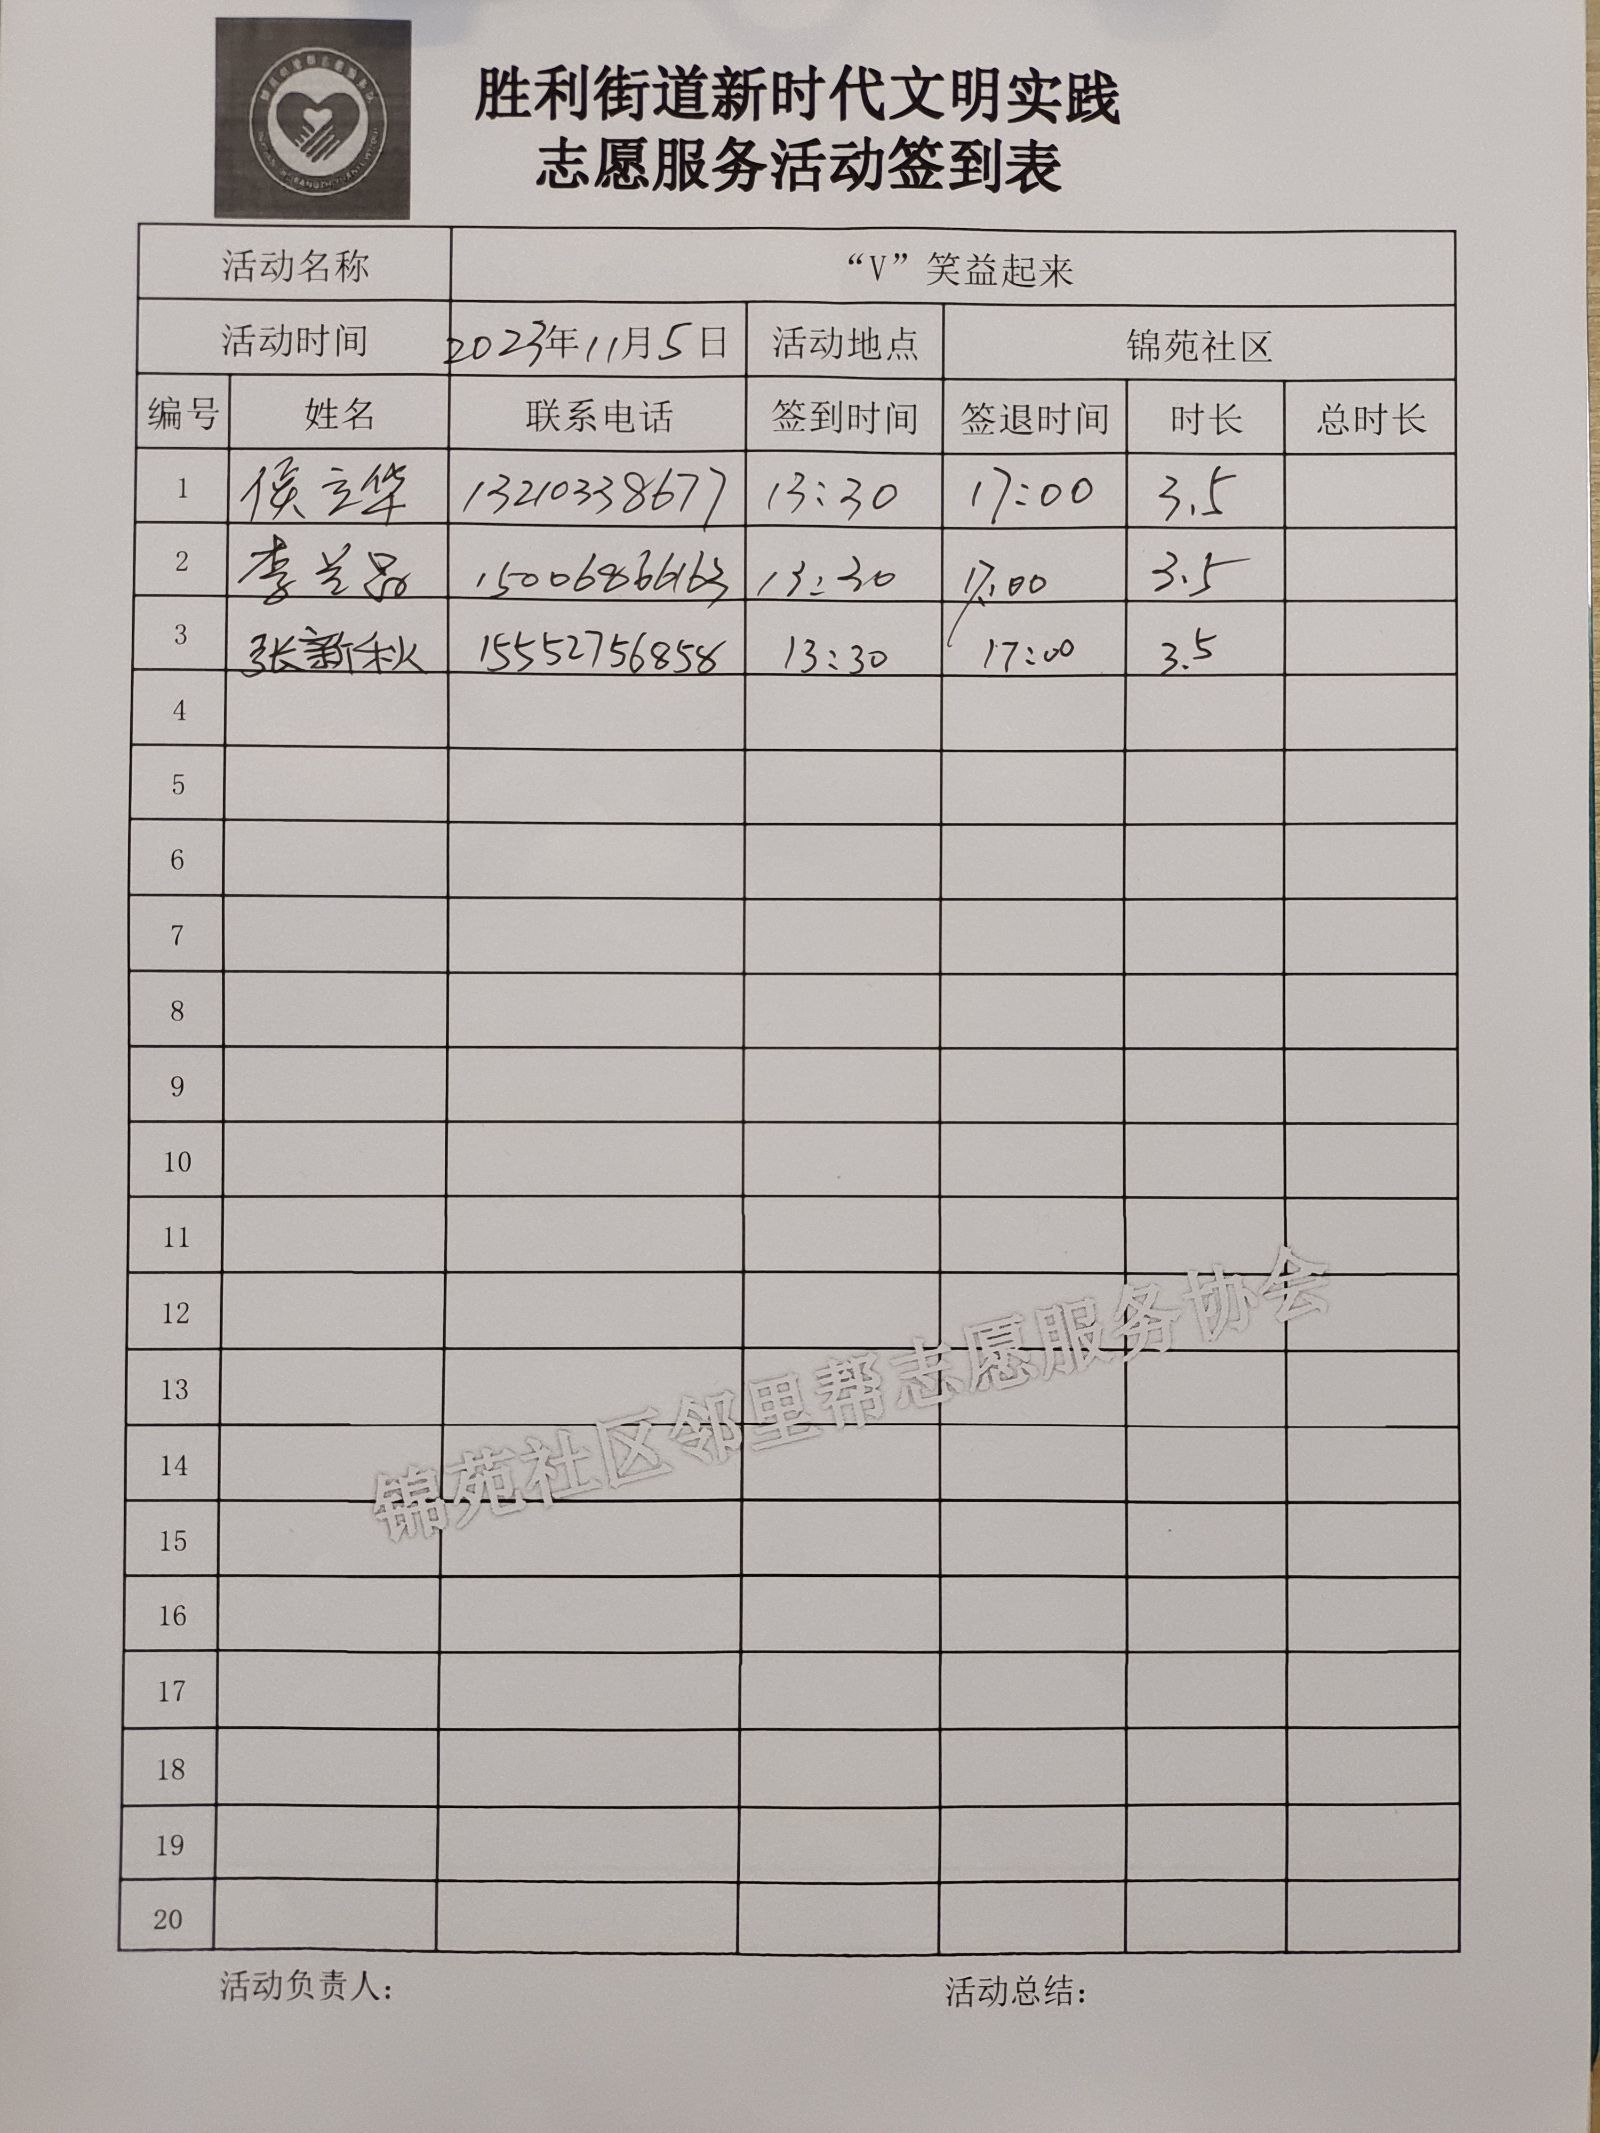 胜利街道新时代文明实践
志愿服务活动签到表
活动名称 “V”笑益起来
活动时间 2023年11月5日 活动地点 锦苑社区
编号 姓名 联系电话 签到时间 签退时间 时长 总时长
1 侯立华 13210338677 13:30 17:00 3.5
2 李兰 15006866163 13:30 17:00 3.5
3 张新秋 15552756858 13:30 17:00 3.5
4
5
6
7
8
9
10
11
12
13
14
15
16
17
18
19
20
锦苑社区邻里帮志愿服务协会
活动负责人: 活动总结: